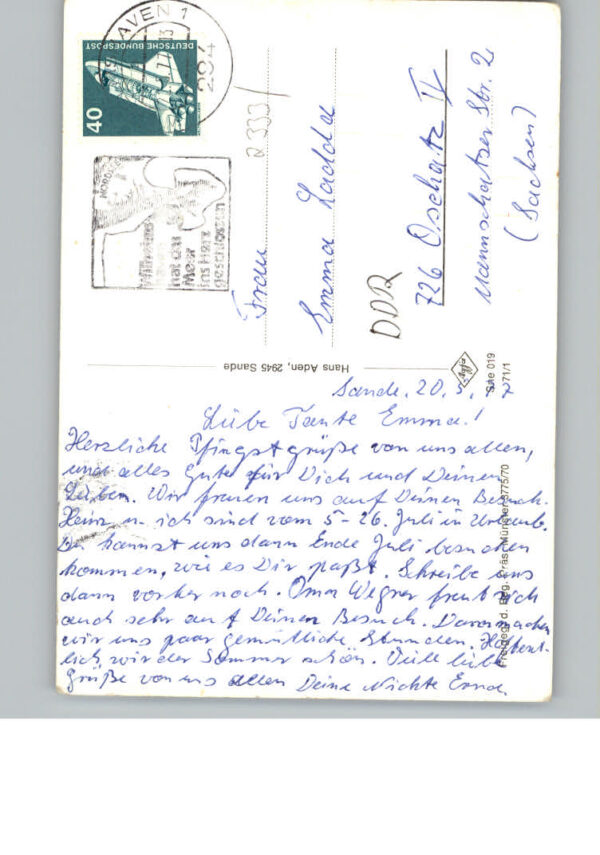 Sande, 20.5.
Liebe Tante Emma!
Herzliche Pfingstgrüße von uns allen,
und alles Gute für Dich und Deinen
Lieben. Wir freuen uns auf Deinen Besuch.
Heinz u. ich sind vom 5-26. Juli in Urlaub.
Du kannst uns dann Ende Juli besuchen
kommen, wie es Dir paßt. Schreibe uns
dann vorher noch. Oma Wegner freut sich
auch sehr auf Deinen Besuch. Dann machen
wir uns paar gemütliche Stunden. Hoffent-
lich, wir der Sommer schön. Viele liebe
Grüße von uns allen Deine Nichte Erna
DEUTSCHE BUNDESPOST
40
AVEN 1
294
NORDSEE
Wilhelms-
haven
hat das
Meer
ins Herz
geschlossen
2333/
Frau
Emma Ladda
DDR
726 Oschatz IV
Mannschatzer Str. 2
(Sachsen)
Hans Aden, 2945 Sande
Agfa
019
271/1
Freigeg. d. Reg. Präs. München 3775/70